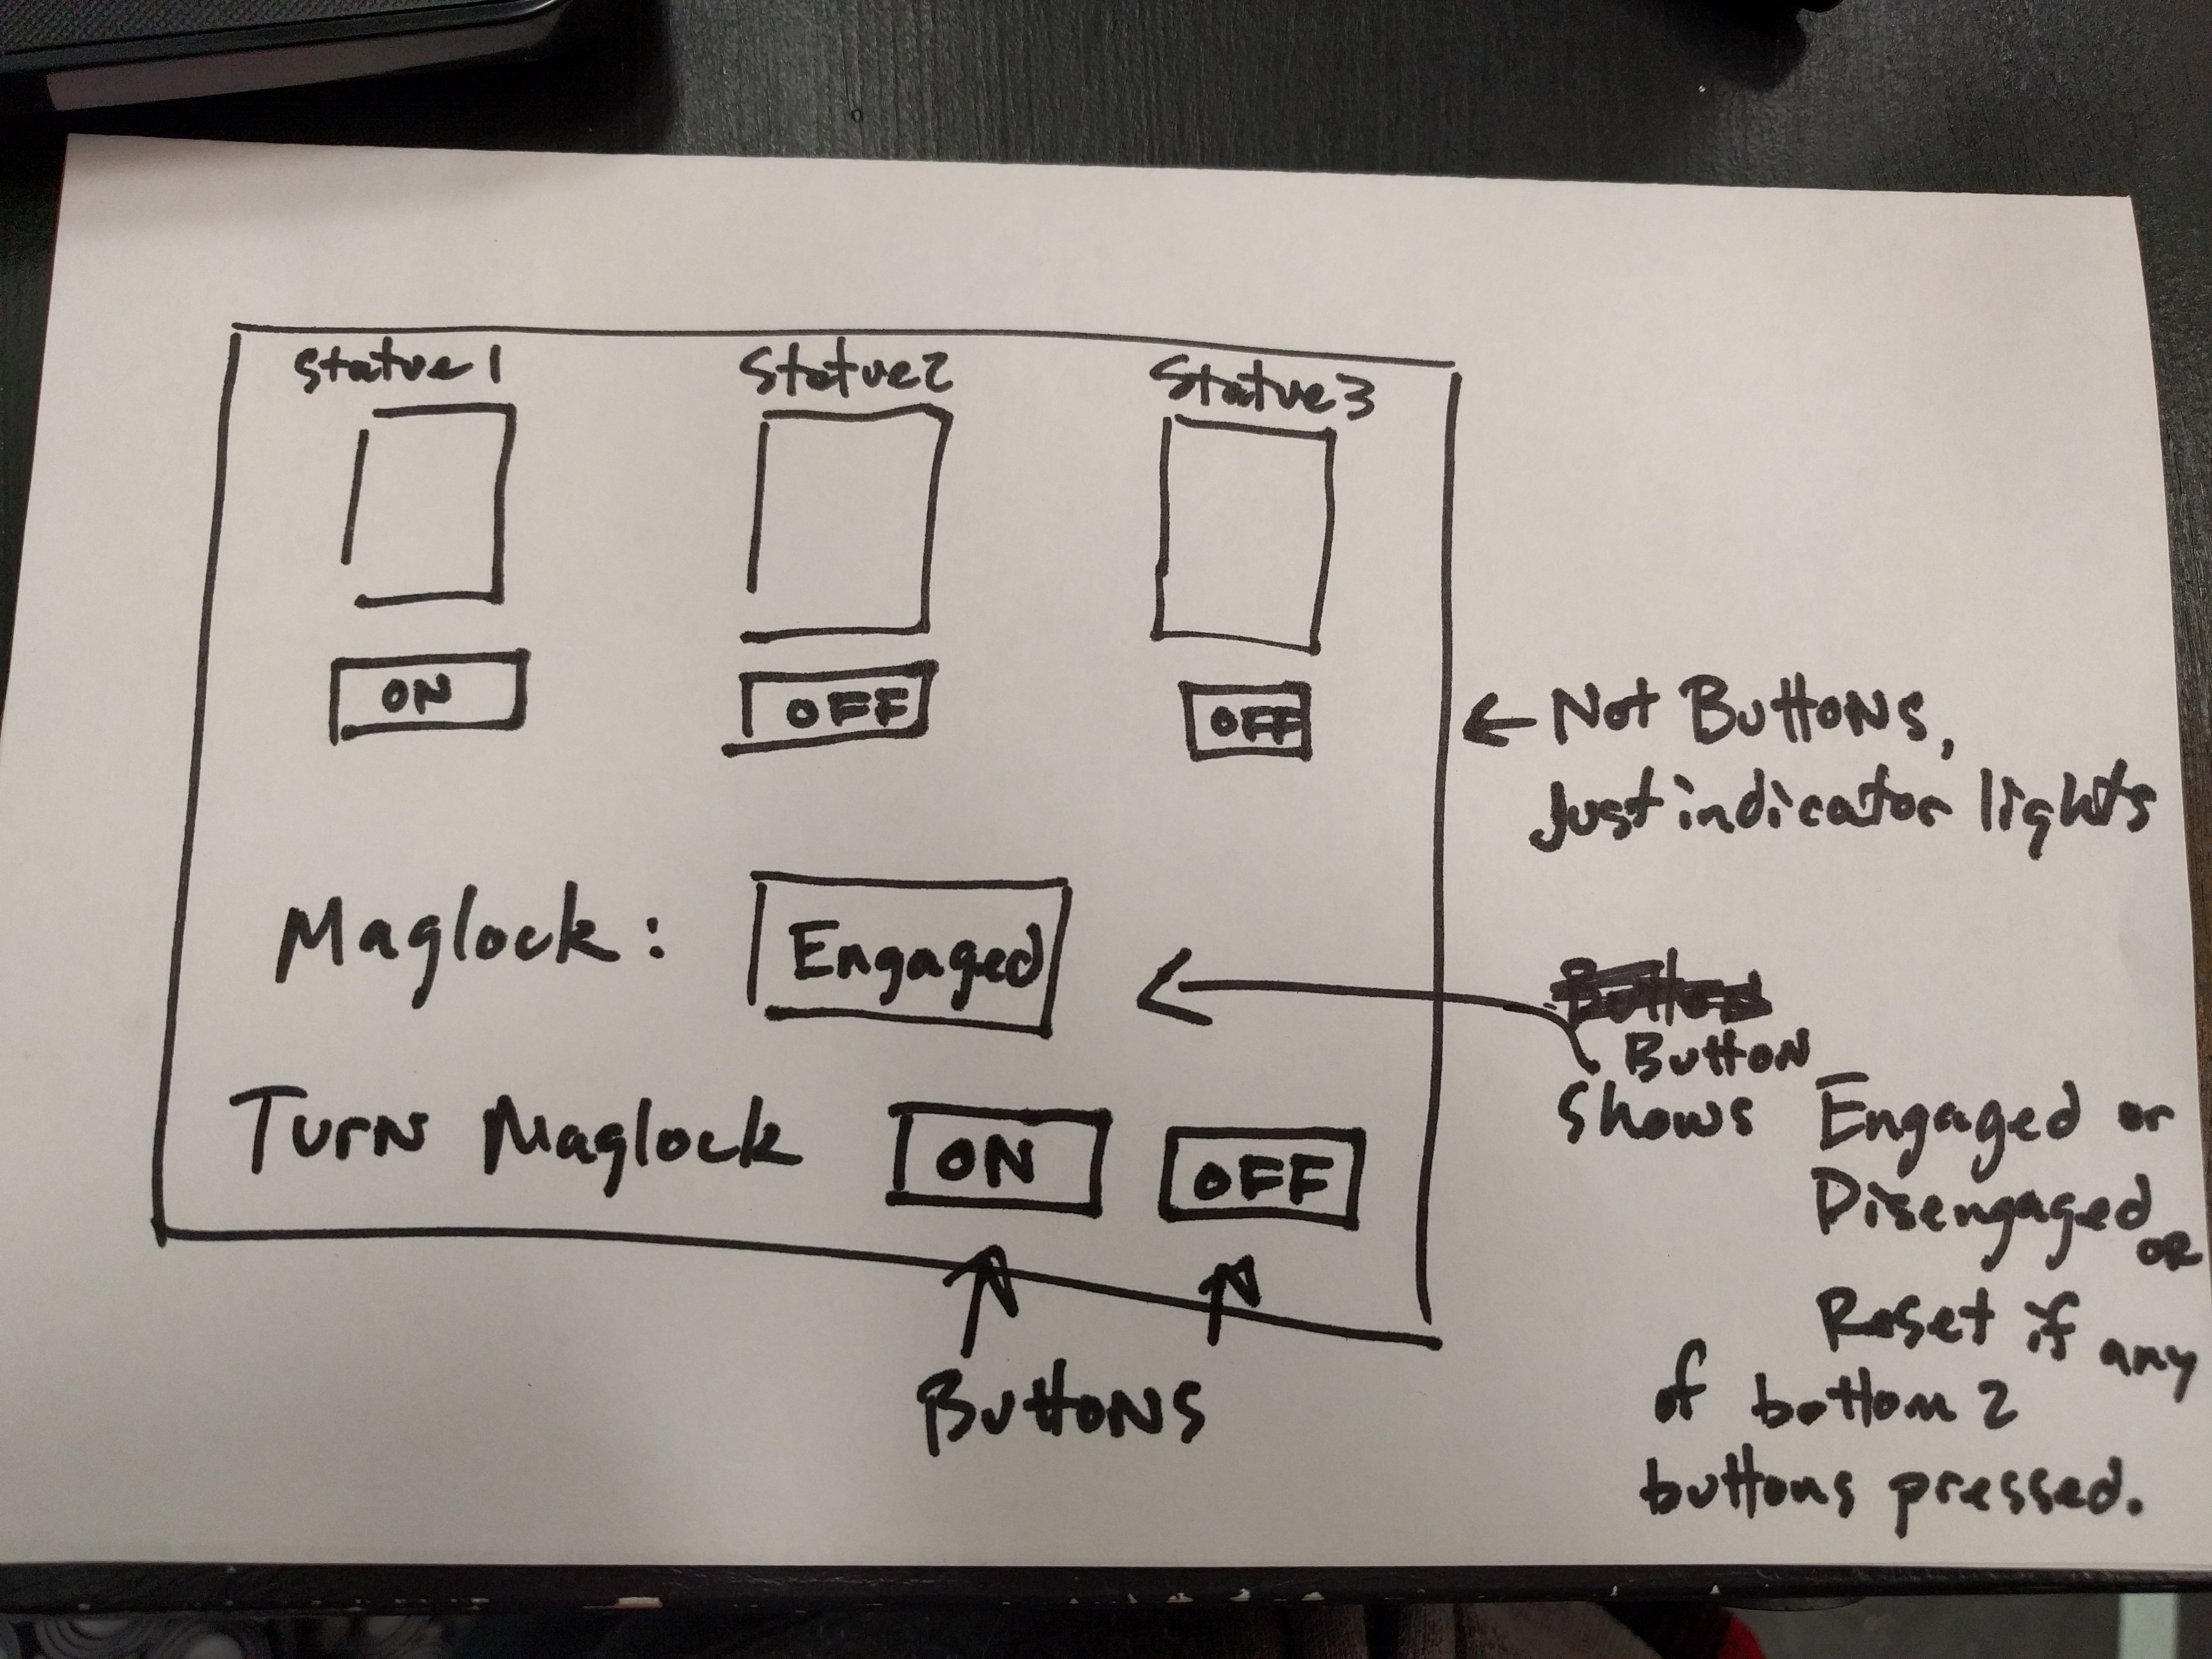 Statue1 Statue2 Statue3
ON OFF OFF
← Not Buttons,
Just indicator lights
Maglock: Engaged
Button
Shows Engaged or
Disengaged OR
Reset if any
of bottom 2
buttons pressed.
Turn Maglock ON OFF
Buttons